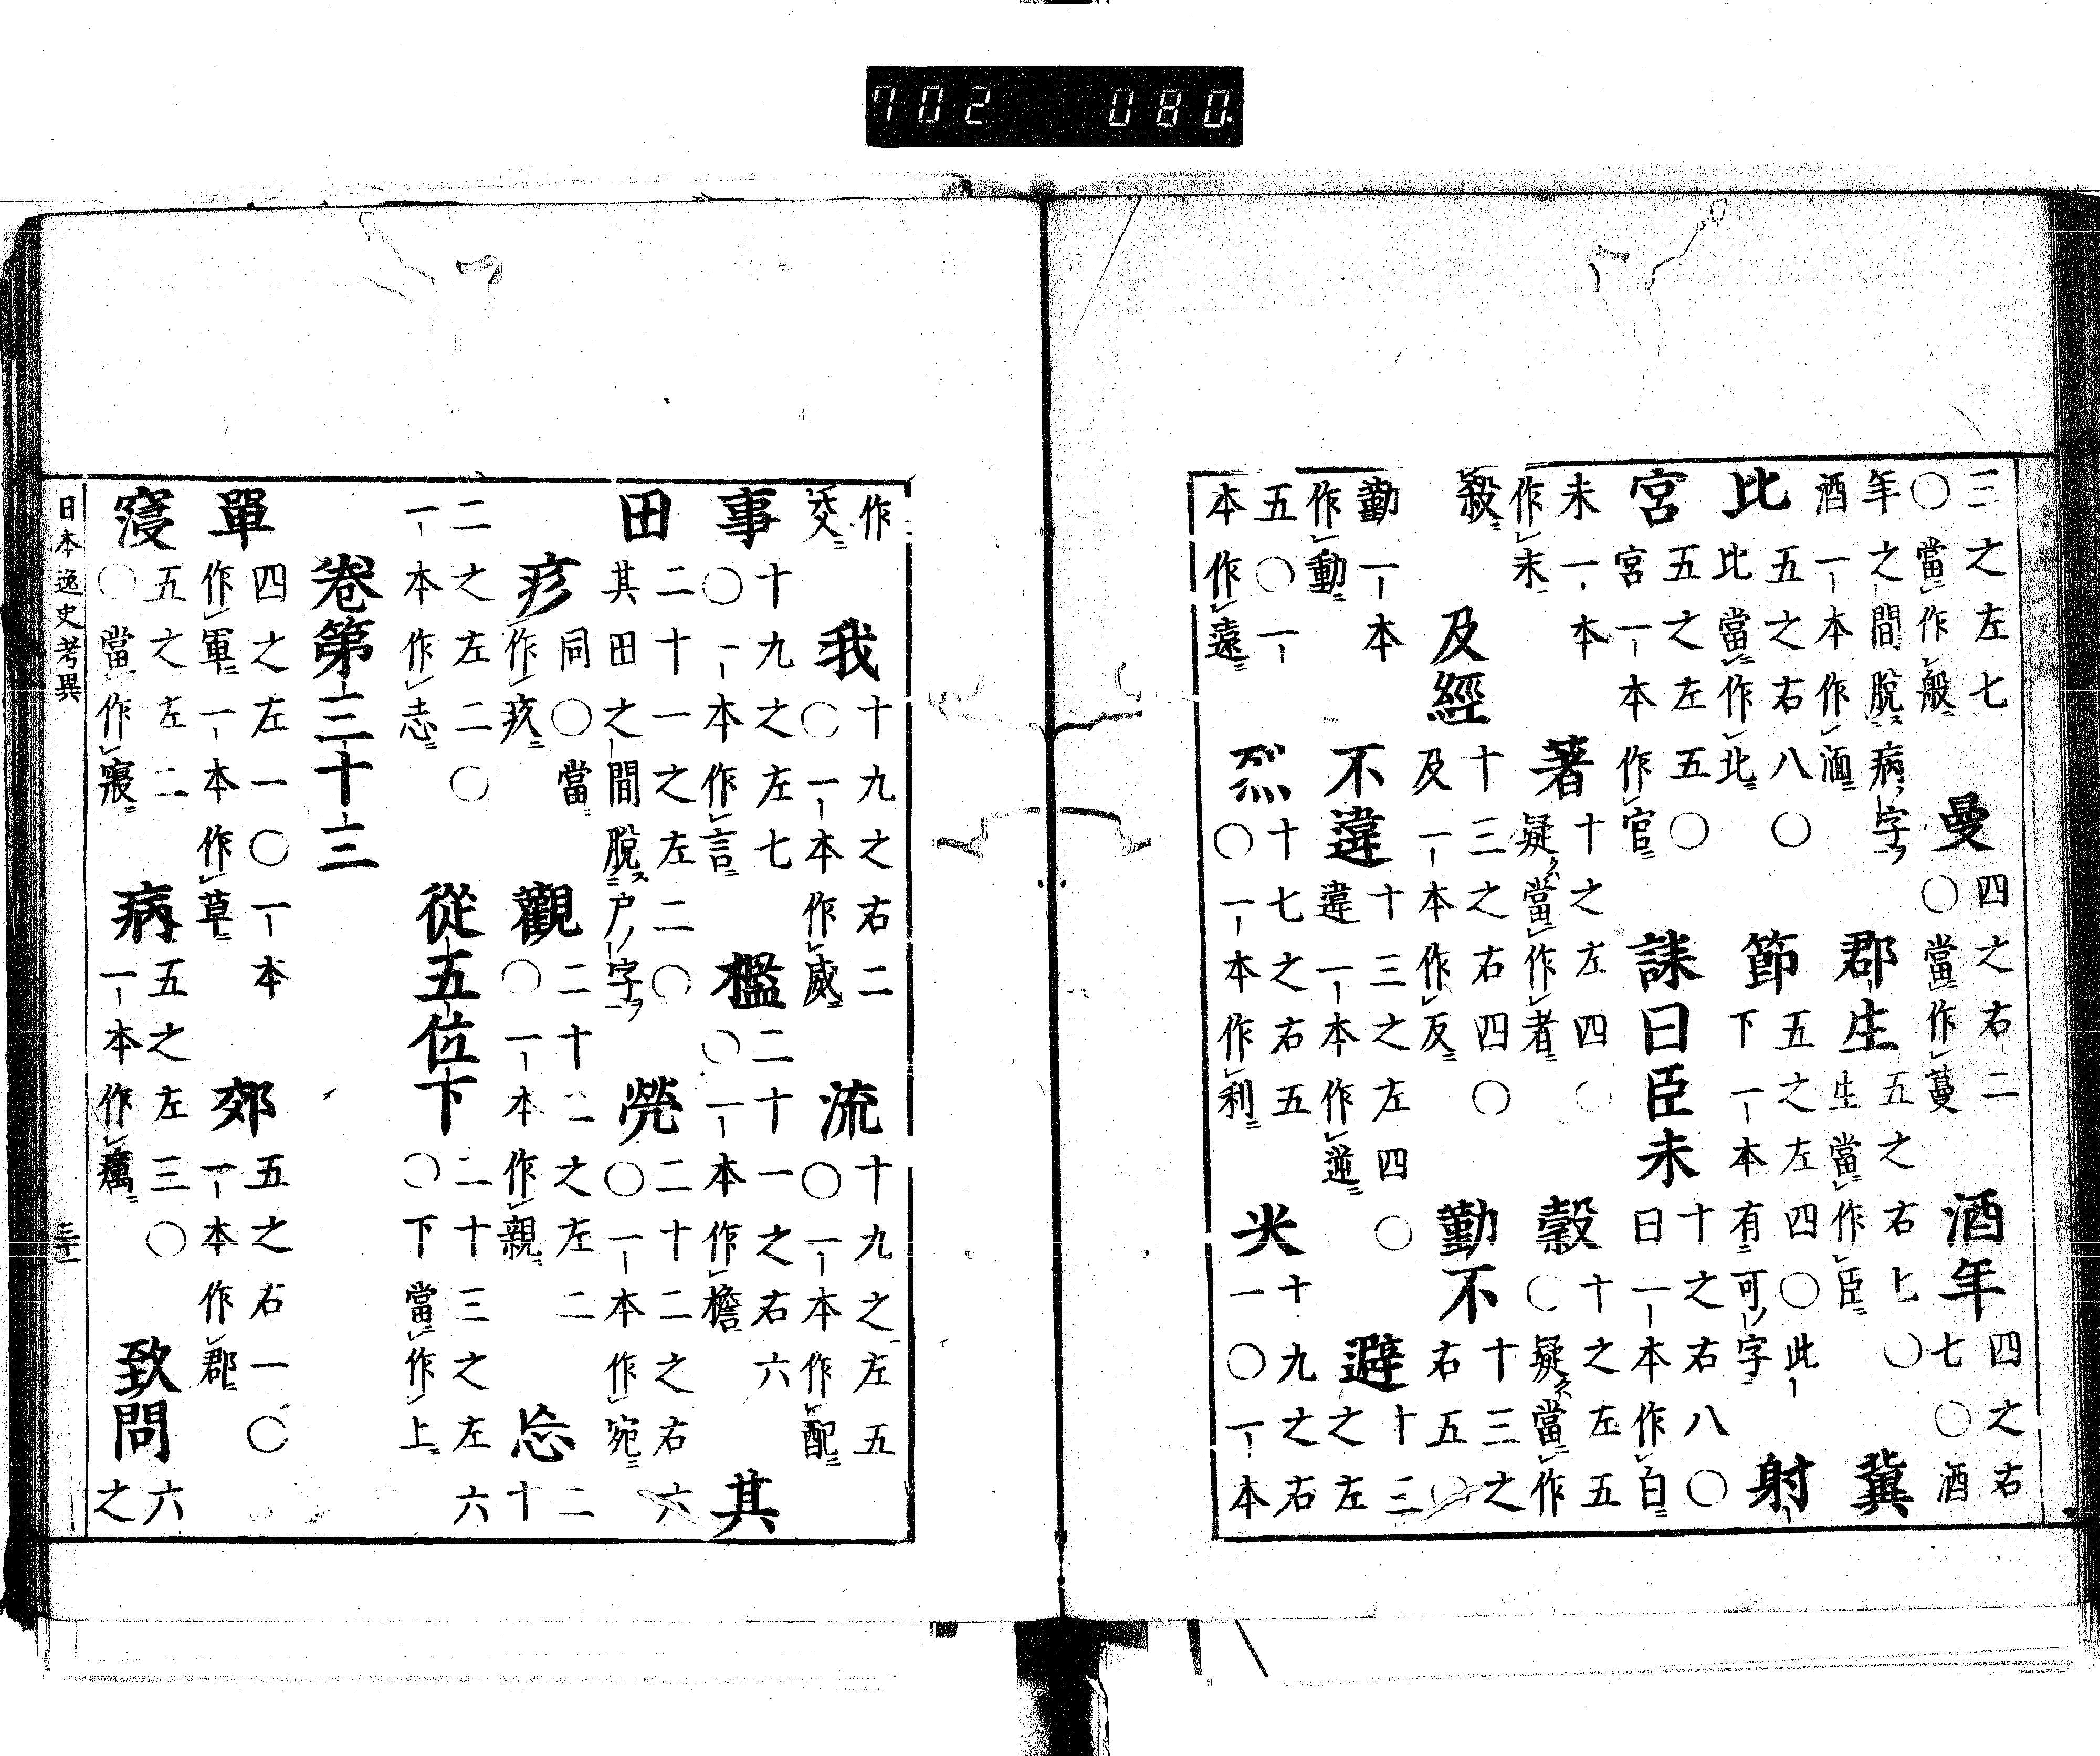 三之左七○當作般曼四之右二○當作蔓酒年四之右七○酒
年之間脱病字酒一本作湎郡生五之右七○生當作臣冀
比五之右八○比當作北節五之左四○此下一本有可字射
宮五之左五○宮一本作官誄曰臣未十之右八○曰一本作白
未一本作末著十之左四○疑當作者穀十之左五○疑當作
穀及經十三之右四○及一本作反勤不十三之右五○
勤一本作動不違十三之左四○違一本作逆避十三之左
五○一本作遠烈十七之右五○一本作利火十九之右一○一本
作災我十九之右二○一本作威流十九之左五○一本作配
事十九之左七○一本作言檻二十一之右六○一本作檐其
田二十一之左二○其田之間脱戸字焭二十二之右六○一本作宛
疹同○當作疚觀二十二之左二○一本作親忩二十
二之左二○一本作志從五位下二十三之左六○下當作上
卷第三十三
單四之左一○一本作軍一本作草郊五之右一○一本作郡
寑五之左二○當作寢病五之左三○一本作癘致問六之
日本逸史考異 三十一
702 080